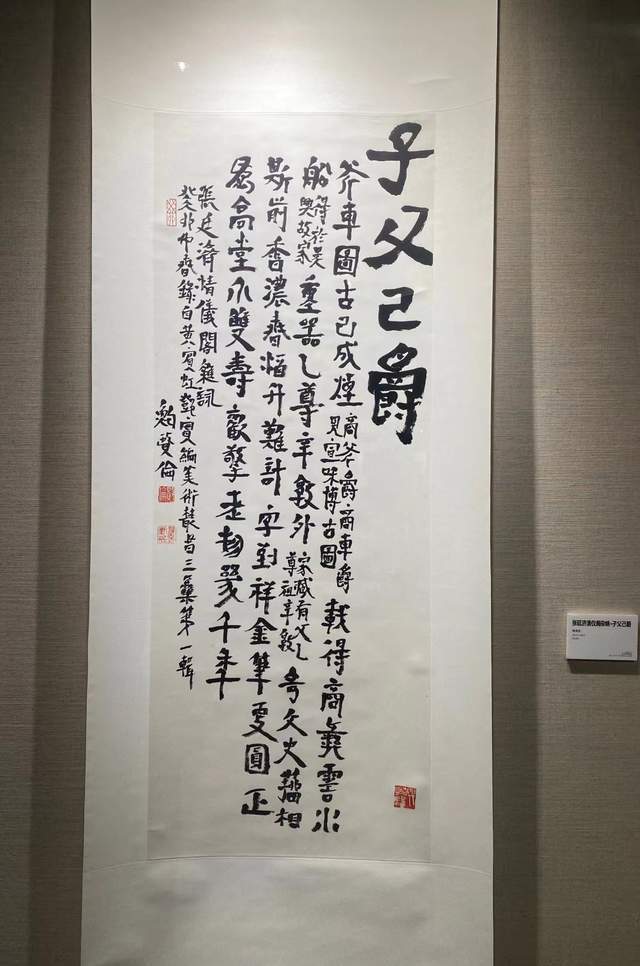 子父己爵
斧車圖古已成煙
商斧爵商車爵
見宣味博古圖
載得商彝雲水
船
得於吳
興故家
重器乙尊辛敦外
家藏有父乙
尊祖辛敦
奇文史籀相
斯前香濃春
升難計字對祥金筆更圓正
高堂介雙壽歡擎走千年
張廷濟清儀閣雜詠
癸卯仲春錄自黃賓虹鄧實編美術叢書三集第一輯
张廷济清仪阁杂咏·子父己爵